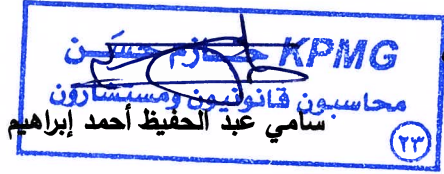 KPMG حازم حسن
محاسبون قانونيون ومستشارون
سامي عبد الحفيظ أحمد إبراهيم
(٢٣)